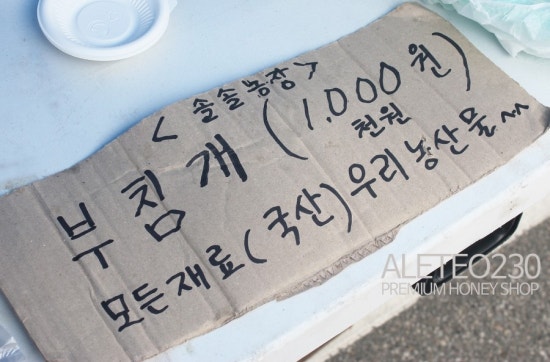 <솔솔농장>
부침개 (1.000원)
천원
모든재료(국산)우리농산물~~
ALETEO230
PREMIUM HONEY SHOP